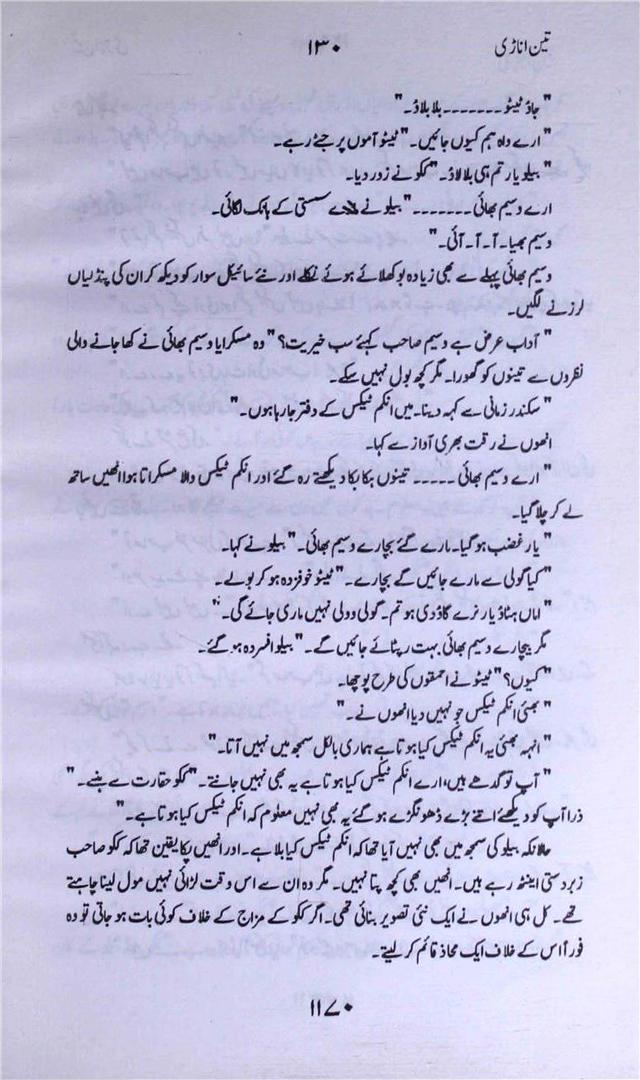 تین اناڑی
۱۳۰
" جاؤ ٹیٹو ۔۔۔۔۔۔۔ بلا بلاؤ۔"
" ارے واہ ہم کیوں جائیں۔" ٹیٹو آموں پر جٹے رہے۔
" بیلو یار تم ہی بلا لاؤ۔" ککو نے زور دیا۔
ارے وسیم بھائی ۔۔۔۔۔۔۔" بیلو نے سستی کے ہانک لگائی۔
وسیم بھیا۔ آ۔ آ۔ آئی۔"
وسیم بھائی پہلے سے بھی زیادہ بوکھلائے ہوئے نکلے اور نئے سائیکل سوار کو دیکھ کر ان کی پنڈلیاں
لرزنے لگیں۔
" آداب عرض ہے وسیم صاحب کہئے سب خیریت؟" وہ مسکرایا وسیم بھائی نے کھا جانے والی
نظروں سے تینوں کو گھورا۔ مگر کچھ بول نہیں سکے۔
" سکندر زمانی سے کہہ دینا۔ میں انکم ٹیکس کے دفتر جا رہا ہوں۔"
انھوں نے رقت بھری آواز سے کہا۔
" ارے وسیم بھائی ۔۔۔۔۔ تینوں ہکا بکا دیکھتے رہ گئے اور انکم ٹیکس والا مسکراتا ہوا انھیں ساتھ
لے کر چلا گیا۔
" یار غضب ہو گیا۔ مارے گئے بچارے وسیم بھائی۔" بیلو نے کہا۔
" کیا گولی سے مارے جائیں گے بچارے۔" ٹیٹو خوفزدہ ہو کر بولے۔
" اماں ہٹاؤ یار نرے گاؤدی ہو تم۔ گولی وولی نہیں ماری جائے گی۔"
مگر بیچارے وسیم بھائی بہت رپٹائے جائیں گے۔" بیلو افسردہ ہو گئے۔
" کیوں؟" ٹیٹو نے احمقوں کی طرح پوچھا۔
" بھئی انکم ٹیکس جو نہیں دیا انھوں نے۔"
" انہہ بھئی یہ انکم ٹیکس کیا ہوتا ہے ہماری بالکل سمجھ میں نہیں آتا۔"
" آپ تو گدھے ہیں، ارے انکم ٹیکس کیا ہوتا ہے یہ بھی نہیں جانتے۔" ککو حقارت سے ہنسے۔"
ذرا آپ کو دیکھئے اتنے بڑے ڈھونگڑے ہو گئے یہ بھی نہیں معلوم کہ انکم ٹیکس کیا ہوتا ہے۔"
حالانکہ بیلو کی سمجھ میں بھی نہیں آیا تھا کہ انکم ٹیکس کیا بلا ہے۔ اور انھیں پکا یقین تھا کہ ککو صاحب
زبردستی اینٹھ رہے ہیں۔ انھیں بھی کچھ پتا نہیں۔ مگر وہ ان سے اس وقت لڑائی نہیں مول لینا چاہتے
تھے۔ کل ہی انھوں نے ایک نئی تصویر بنائی تھی۔ اگر ککو کے مزاج کے خلاف کوئی بات ہو جاتی تو وہ
فوراً اس کے خلاف ایک محاذ قائم کر لیتے۔
۱۱۷۰